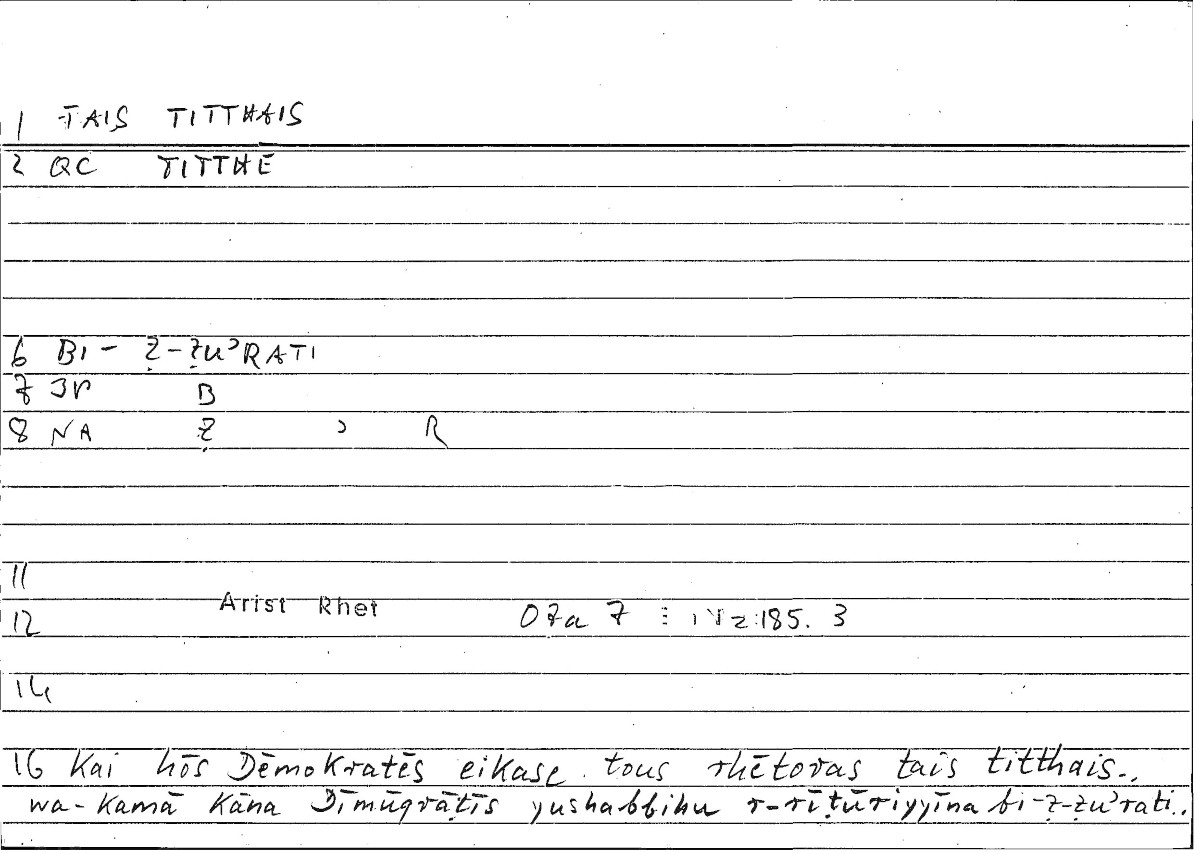 1 TAIS TITTHAIS
2 QC TITTHĒ
6 BI- Ẓ-ẒUʾRATI
7 B
8 NA Ẓ ʾ R
11
Arist Rhet
12 07a 7 185. 3
14
16 Kai hōs Dēmokratēs eikase tous rhētoras tais titthais..
wa-kamā kāna Dīmūqrāṭīs yushabbihu r-rīṭūriyyīna bi-ẓ-ẓuʾrati..